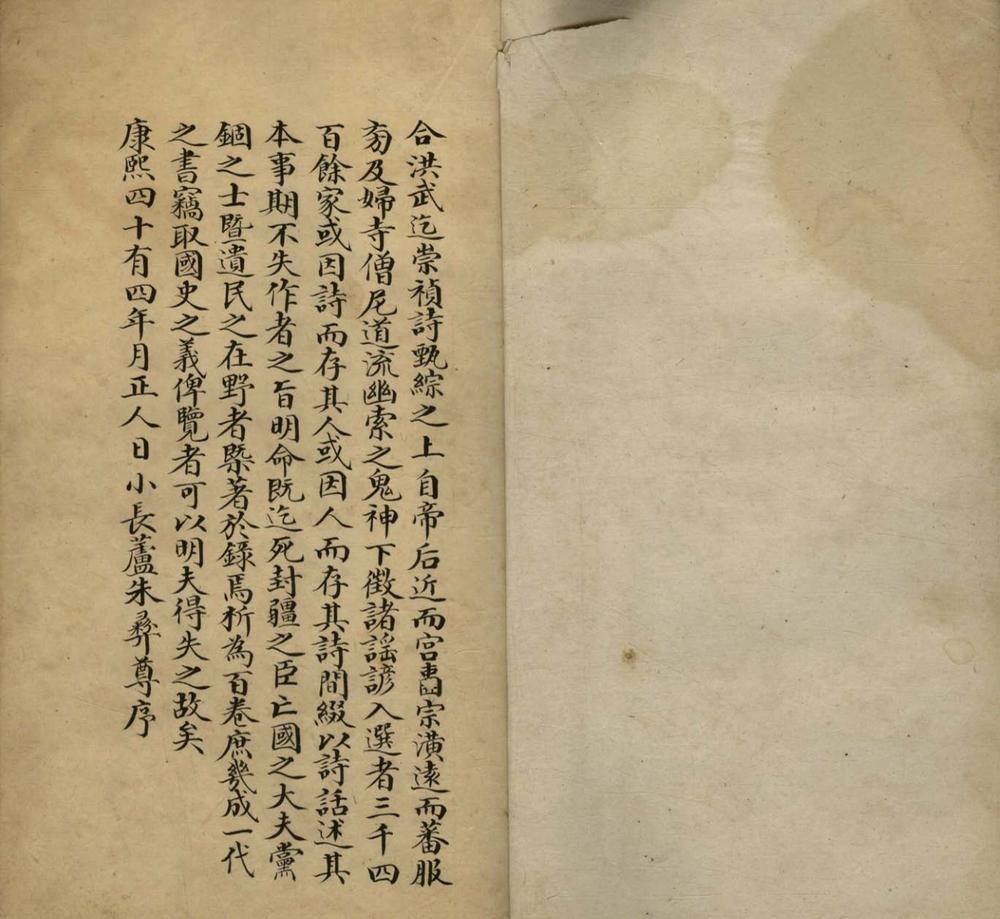 合洪武迄崇禎詩甄綜之上自帝后近而宮壼宗潢遠而蕃服
旁及婦寺僧尼道流幽索之鬼神下徵諸謡諺入選者三千四
百餘家或因詩而存其人或因人而存其詩間綴以詩話述其
本事期不失作者之旨明命既迄死封疆之臣亡國之大夫黨
錮之士暨遺民之在野者槩著於錄焉析為百卷庶幾成一代
之書竊取國史之義俾覽者可以明夫得失之故矣
康熙四十有四年月正人日小長蘆朱彝尊序